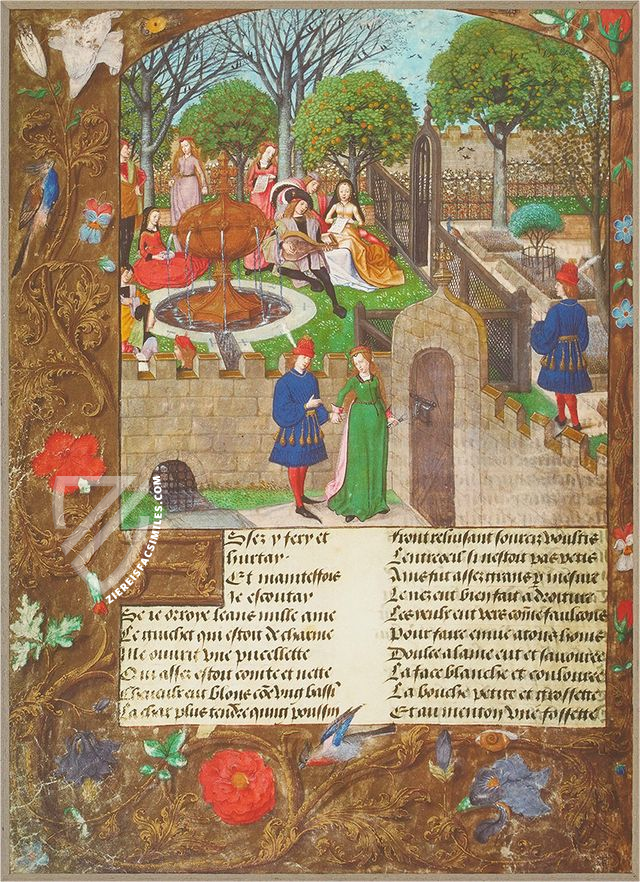 Ssez y fery et
hurtay.
Et maintesfois
Je escoutay
Se ie orroye leans nulle ame
Le guichet qui estoit de charme
Me ouurit vne pucellette
Qui assez estoit cointe et nette
Cheueulx eut blons cõe vng bassĩ
La char plus tendre quung poussin
Front reluisant sourciz voultis
Lentreoeil si nestoit pas petis
Ains fut assez grans p mesure
Le nez eut bien fait a droiture
Les yeulx eut vers cõe faulcons
Pour faire enuie a tous homs
Doulce alaine eut et sauouree
La face blanche et coulouree
La bouche petite et grossette
Et au menton vne fossette
ZIEREISFACSIMILES.COM